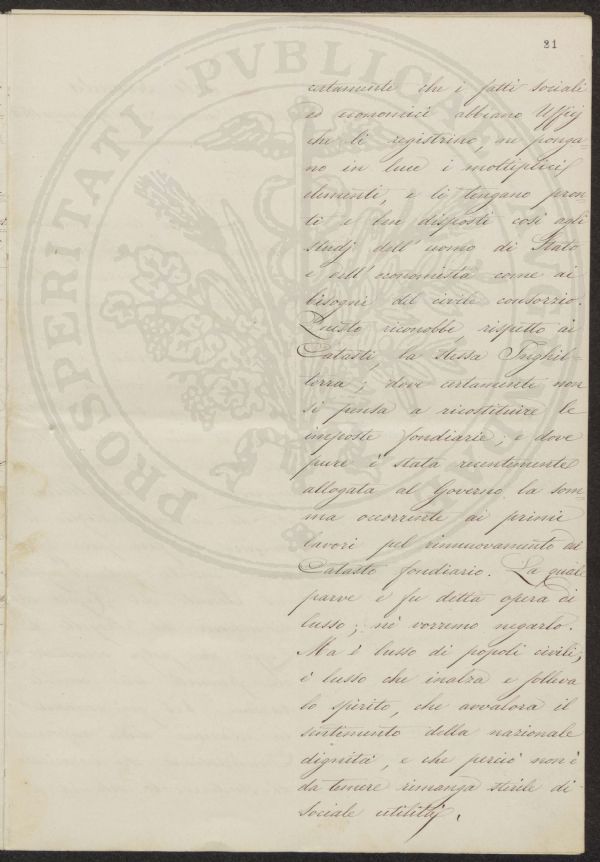 21
certamente che i fatti sociali
ed economici abbiano Uffizj
che li registrino, ne ponga-
no in luce i moltiplici
elementi, e li tengano pron-
ti e ben disposti così agli
studj dell' uomo di Stato
e dell' economista come ai
bisogni del civile consorzio.
Questo riconobbe, rispetto ai
Catasti, la stessa Inghil-
terra; dove certamente non
si pensa a ricostituire le
imposte fondiarie; e dove
pure è stata recentemente
allogata al Governo la som-
ma occorrente ai primi
lavori pel rinnuovamento del
Catasto fondiario. La quale
parve e fu detta opera di
lusso; nè vorremo negarlo.
Ma è lusso di popoli civili;
è lusso che inalza e solleva
lo spirito, che avvalora il
sentimento della nazionale
dignità, e che perciò non è
da temere rimanga sterile di
sociale utilità.
PROSPERITATI PVBLICAE